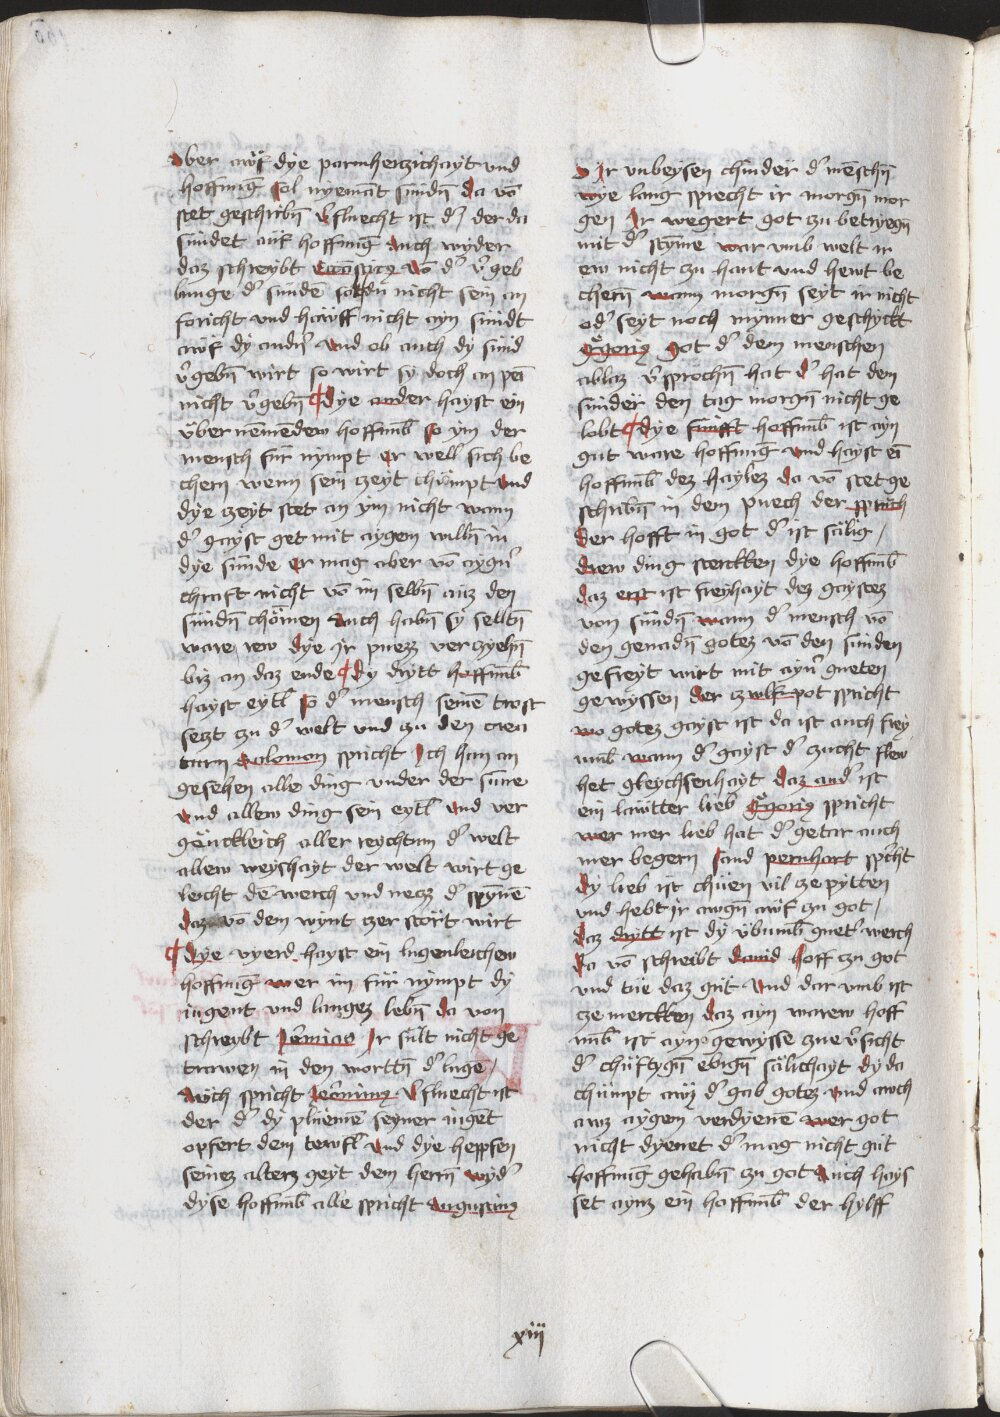 Aber awf dye parmherczichayt vnd
hoffnūg sol nyemāt sundn̄ da vō
stet geschribn̄ v̄fluecht ist d' der da
sündet auf hoffnūg Auch wyder
daz schreybt vō d' v̄geb
bunge d' sündē nicht sein an
foricht vnd häwff nicht ayn sündt
awf dy andn̄ Vnd ob auch dy sünd
v̄gebn̄ wirt so wirt sy doch an pēī
nicht v̄gebn̄ ¶ Dye ander hayst ein
über nēmēdew hoffnūb so ym der
mensch für nympt er well sich be
chern wenn sein czeyt chümpt Vnd
dye czeyt stet an ym nicht wann
d' gayst get mit aygem willn̄ in
dye sünde er mag aber vō aygn̄
chraft nicht vō im selbn̄ auz den
sündn̄ chömen Auch habn̄ sy selltn̄
ware rew dye Ir puezz verczyehn̄
biz an daz ende ¶ Dy drytt hoffnūb
hayst eytl̄ so d' mensch seinē trost
seczt zu d' welt vnd zu den crea
turn Salomon spricht Ich han an
gesehen alle ding vnder der sunne
vnd allew ding sein eytl̄ vnd ver
gänckleich aller reychtum d' welt
allew weyshayt der welt wirt ge
leicht dē werch vnd necz d' spynnē
Daz vō dem wynt czerstört wirt
¶ Dye vyerd hayst ein lugenleichew
hoffnūg wer im für nympt dy
iugent vnd langez lebn̄ da von
schreybt Jeremias Ir sült nicht ge
trawen in den wortn̄ d' luge /
Auch spricht Jeronimꝯ v̄fluecht ist
der d' dy plüemē seyner iugēt
opfert dem tewfl̄ Vnd dye hepfen
seinez alterz geyt dem herrn̄ wyd'
dyse hoffnūb alle spricht Augustinꝯ
O Ir vnbeysen chinder d' mēschn̄
wye lang sprecht ir morgn̄ mor
gen Ir wegert got zu betryegn̄
mit d' stymme war vmb welt ir
ew nicht zu hant vnd hewt be
chern̄ wann morgn̄ seyt ir nicht
od' seyt noch mynner geschyckt
Gregoriꝯ got d' dem menschen
ablaz v̄sprochn̄ hat d' hat dem
sünder den tag morgn̄ nicht ge
lobt ¶ Dye fünfft hoffnūb ist ayn
gut ware hoffnūg vnd hayst eī
hoffnūb dez haylez da vō stet ge
schribn̄ in dem puech der sprüch
Der hofft in got d' ist sälig /
drew ding sterckken dye hoffnūb
daz erst ist freyhayt dez gaystez
von sündn̄ wann d' mensch vō
den genadn̄ gotez vō den sünden
gefreyt wirt mit ayn̄ gueten
gewyssen der czwlfpot spricht
wo gotez gayst ist da ist auch frey
wann d' gayst d' zucht flew
het gleychsenhayt Daz and' ist
ein lawtter lieb Gregoriꝯ spricht
wer mer lieb hat d' getar auch
mer begern sand pernhart spricht
Dy lieb ist chüen vil ze pytten
vnd hebt ir awgn̄ awf zu got /
Daz drytt ist dy vbumb guet' werch
Da vō schreibt dauid hoff zu got
vnd tüe daz güt Vnd dar vmb ist
ze merckken daz ayn warew hoff
nūb ist ayn gewysse zuev̄sicht
d' chüftygn̄ ebign̄ sälichayt dy da
chümpt awz d' gab gotez vnd awch
awz aygem verdyenē wer got
nicht dyenet d' mag nicht gut
hoffnūg gehabn̄ zu got Auch hays
set aynz ein hoffnūb der hylff
xiij